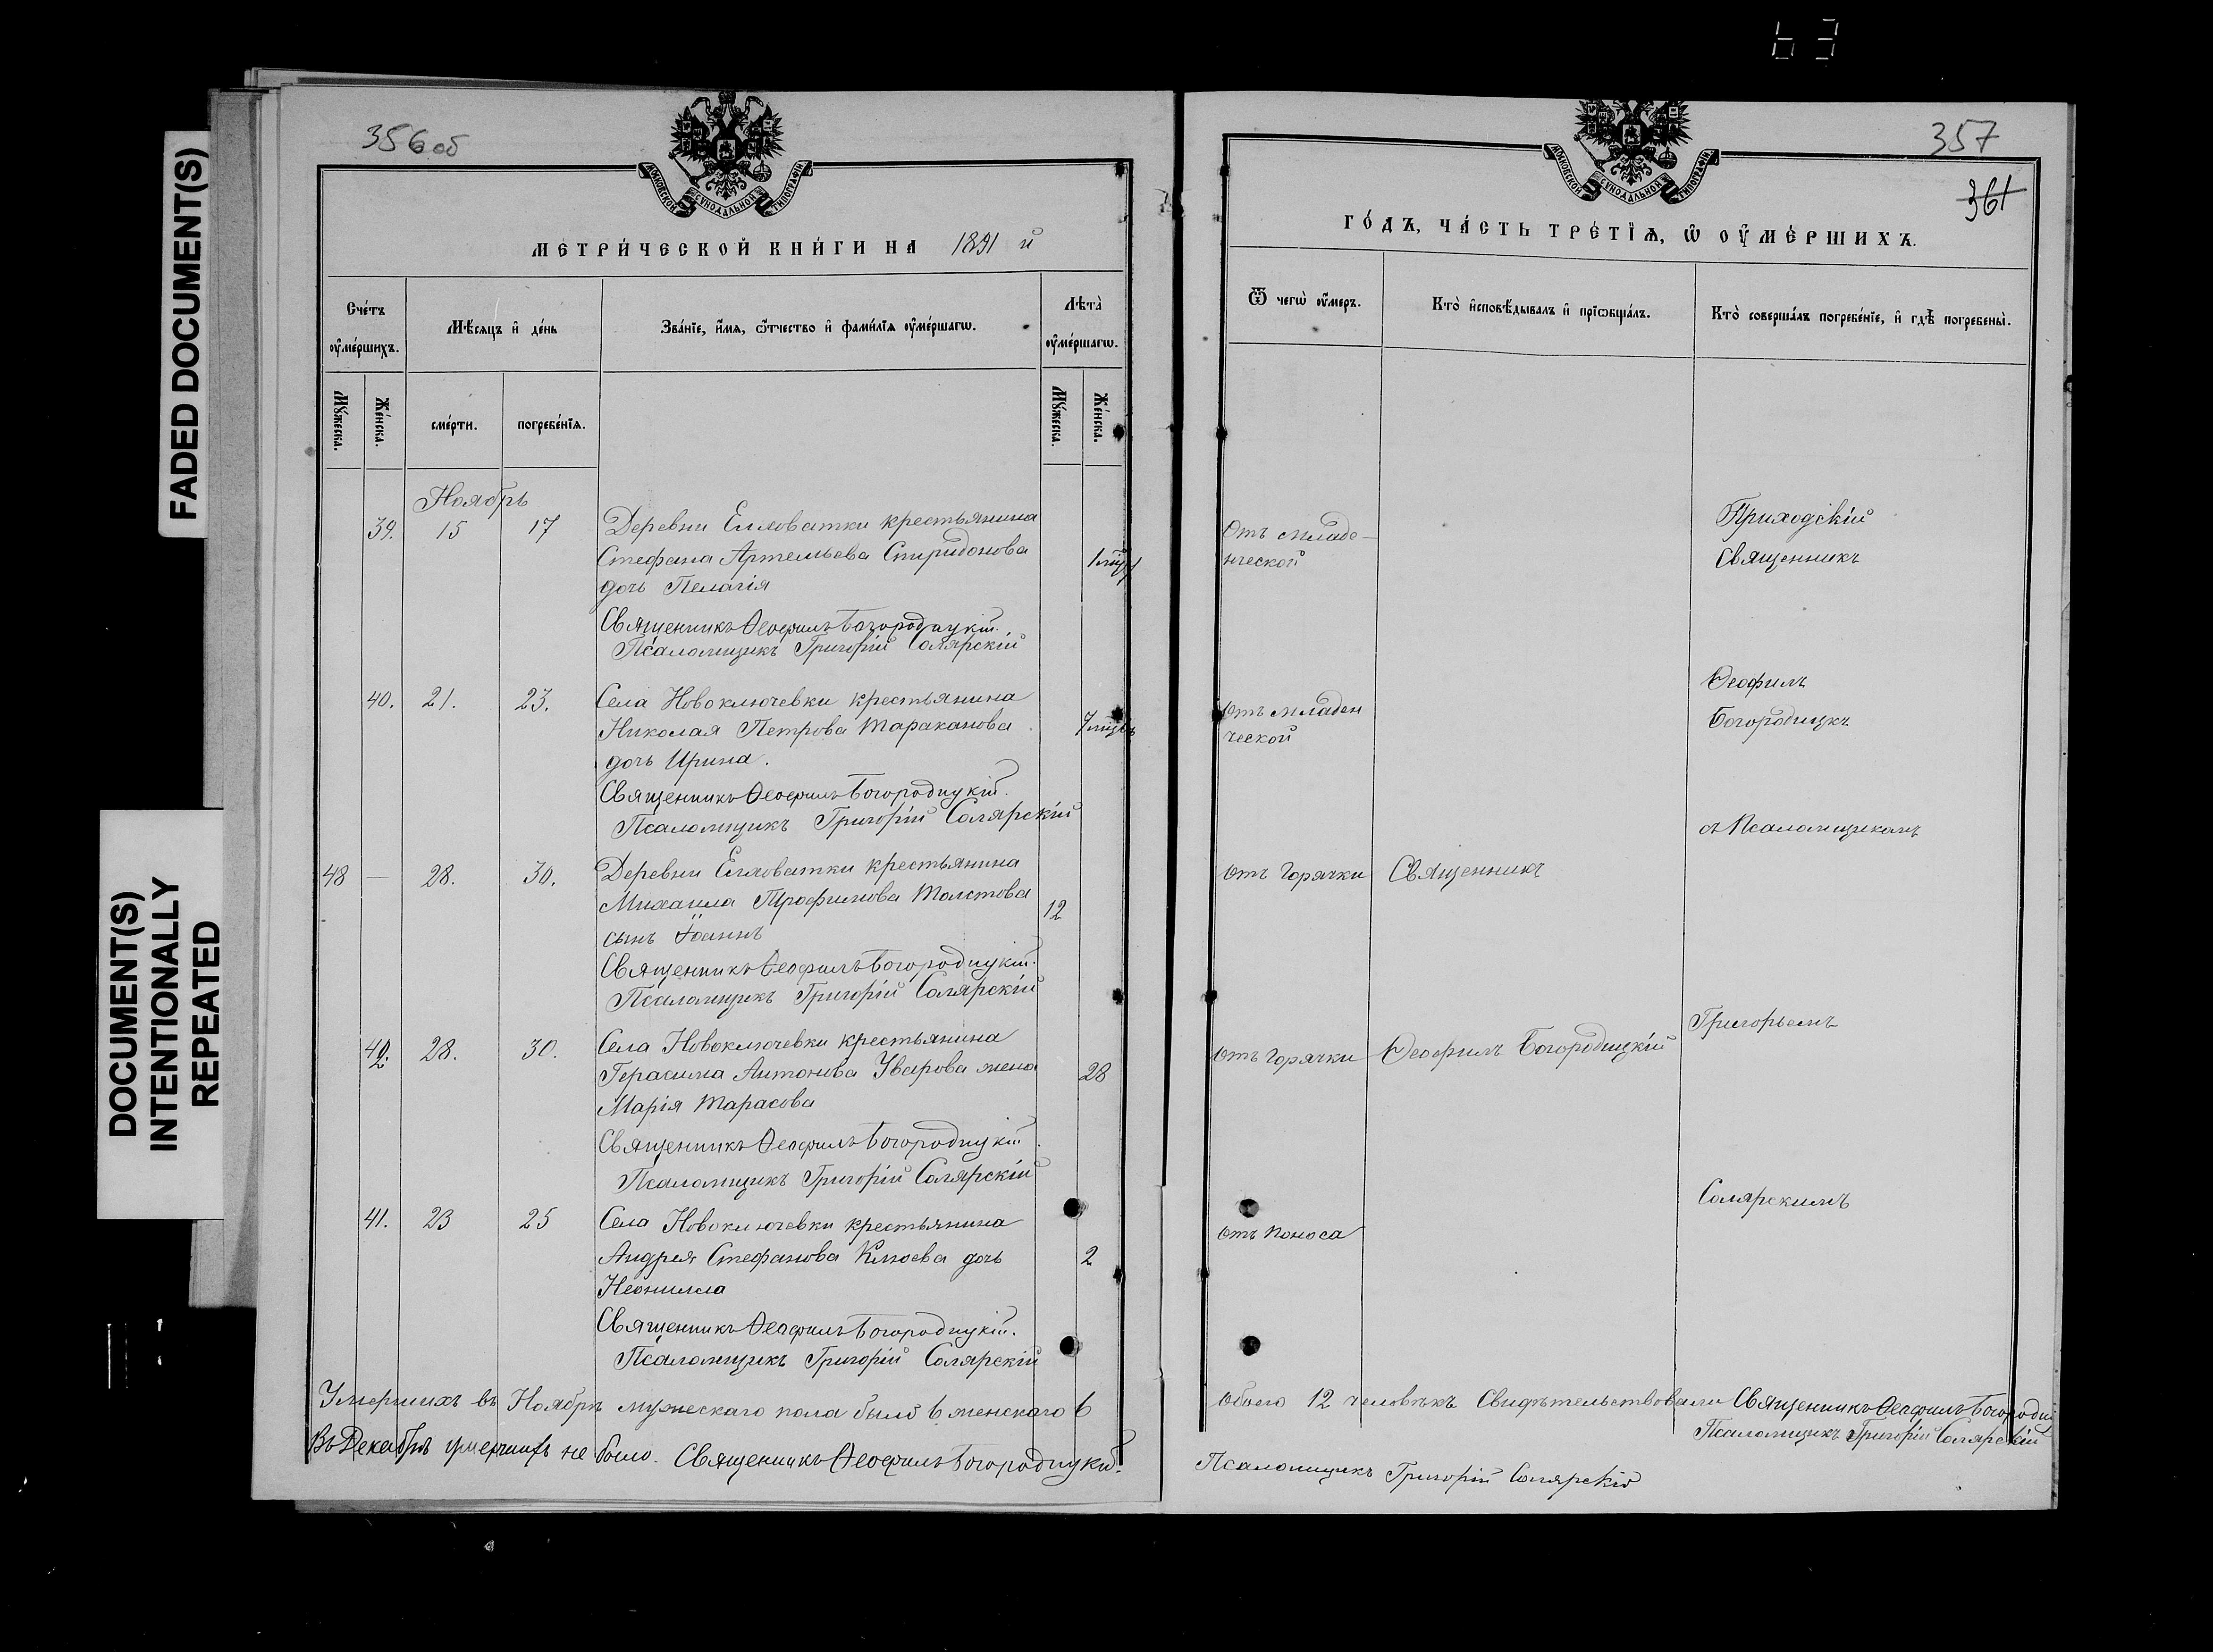 63
FADED DOCUMENT(S)
DOCUMENT(S)
INTENTIONALLY
REPEATED
356 об
МОСКОВСКОЙ СУНОДАЛЬНОЙ ТИПОГРАФІИ
МЕТРИ́ЧЕСКОЙ КНИ́ГИ НА 1891 й
Сче́тъ оу҆ме́ршихъ.
Мѣ́сяцъ и҆ де́нь
Зва́нїе, и҆́мя, ѻ҆́тчество и҆ фами́лїя оу҆ме́ршагѡ.
Лѣта̀ оу҆ме́ршагѡ.
Мꙋ́жеска.
Же́нска.
сме́рти.
погребе́нїя.
Мꙋ́жеска.
Же́нска.
Ноябрь
39. 15 17 Деревни Елховатки крестьянина
Стефана Артемьева Спиридонова
дочь Пелагія
Священникъ Ѳеофилъ Богородицкій.
Псаломщикъ Григорій Солярскій
40. 21. 23. Села Новоключевки крестьянина
Николая Петрова Тараканова
дочь Ирина.
Священникъ Ѳеофилъ Богородицкій.
Псаломщикъ Григорій Солярскій
48 — 28. 30. Деревни Елховатки крестьянина
Михаила Трофимова Толстова 12
сынъ Іоаннъ
Священникъ Ѳеофилъ Богородицкій.
Псаломщикъ Григорій Солярскій
42. 28. 30. Села Новоключевки крестьянина
Герасима Антонова Уварова жена 28
Марія Тарасова
Священникъ Ѳеофилъ Богородицкій.
Псаломщикъ Григорій Солярскій
41. 23 25 Села Новоключевки крестьянина
Андрея Стефанова Клюева дочь 2
Неонилла
Священникъ Ѳеофилъ Богородицкій.
Псаломщикъ Григорій Солярскій
Умершихъ въ Ноябрѣ мужескаго пола было 6 женскаго 6
Въ Декабрѣ умершихъ не было. Священникъ Ѳеофилъ Богородицкій.
357
361
МОСКОВСКОЙ СУНОДАЛЬНОЙ ТИПОГРАФІИ
ГО́ДЪ, ЧА́СТЬ ТРЕ́ТЇЯ, Ѡ҆ ОУ҆МЕ́РШИХЪ.
Ѿ чегѡ̀ оу҆́меръ.
Кто̀ и҆сповѣ́дывалъ и҆ прїѡбща́лъ.
Кто̀ соверша́лъ погребе́нїе, и҆ гдѣ̀ погребены̀.
Отъ младе-
нческой
Приходскій
Священникъ
Ѳеофилъ
Отъ младен
ческой
Богородицкъ
съ Псаломщикомъ
Отъ Горячки Священникъ
Григорьемъ
Отъ Горячки Ѳеофилъ Богородицкій
Солярскимъ
Отъ Поноса
Обоего 12 человѣкъ Свидѣтельствовали Священникъ Ѳеофилъ Богородиц
Псаломщикъ Григорій Солярскій
Псаломщикъ Григорій Солярскій